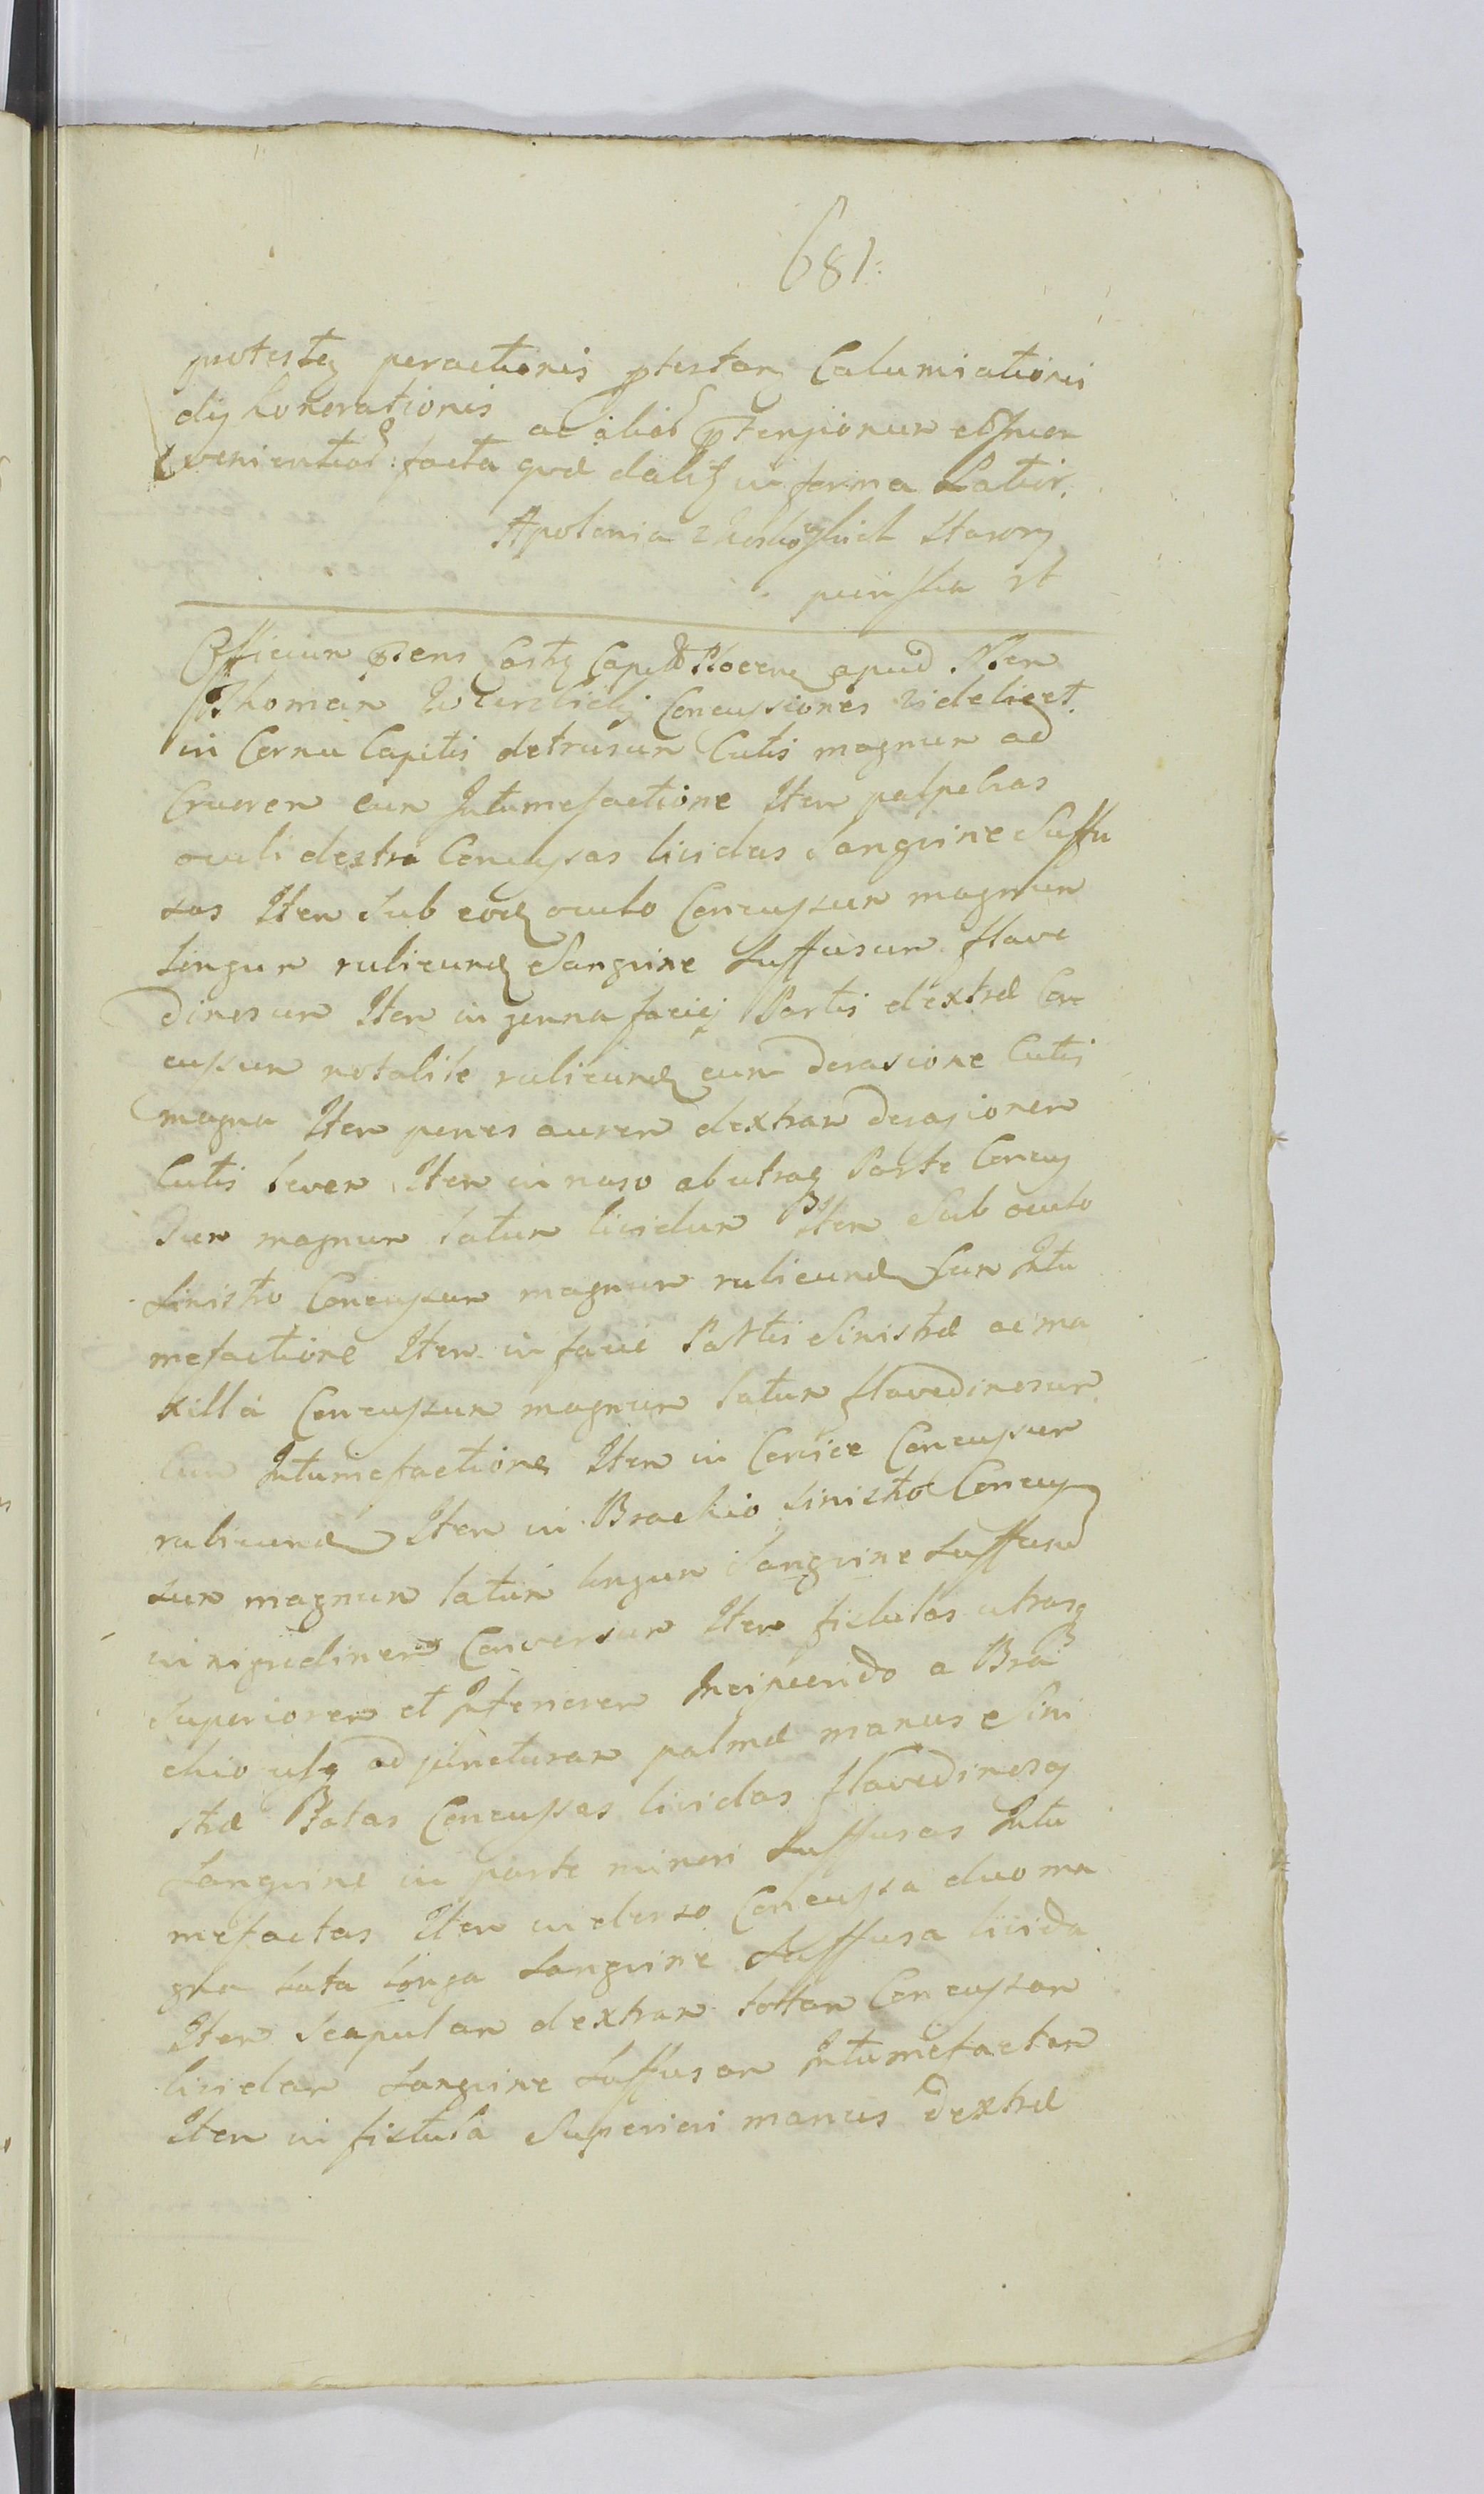 681:
protestę peractionis Calumiationis
honorationis ac aliar
venientiar: facta quæ dalis in forma Latior.
Apolonia
Officium Pens Castr Capit Plocen apud Nlem
Thomam Concussiones videlicet.
in Cornu Capitis detrusum Cutis magnum ad
Cruorem cum Intumefactione Item palpebras
oculi dextra Concussas lividas Sanguine Suffu
sas Item Sub eod oculo Concussum magnum
longum rubicund Sanguine Suffusum flave
dinosum Item in genna faciej Partis dextræ Con
cussum notabile rubicund cum derasione Cutis
magna Item penes aurem dextram derasionem
Cutis levem Item in naso ab utraq Parte Concus
sum magnum latum lividum Item Sub oculo
Sinistro Concussum magnum rubicund Cum Intu
mefactione Item in facie Partis Sinistræ ac ma
xilla Concussum magnum latum flavedinosum
Cum Intumefactione Item in Cervice Concussum
rubicund Item in Brachio Sinistro Concus
sum magnum latum longum Sanguine Suffusu
in nigredinem Conversum Item fistulas utrasq
Superiorem et Inferiorem Incipiendo a Bra
chio usq ad juncturam palmæ manus Sini
stræ totas Concussas lividas flavedinosq
Sanguine in parte minori Suffusas Intu
mefactas Item in dorso Concussa duo ma
gna lata longa Sanguine Suffusa livida
Item Scapulam dextram tottam Concussam
lividam Sanguine Suffusam Intumefactam
Item in fistula Superiori manus dextræ